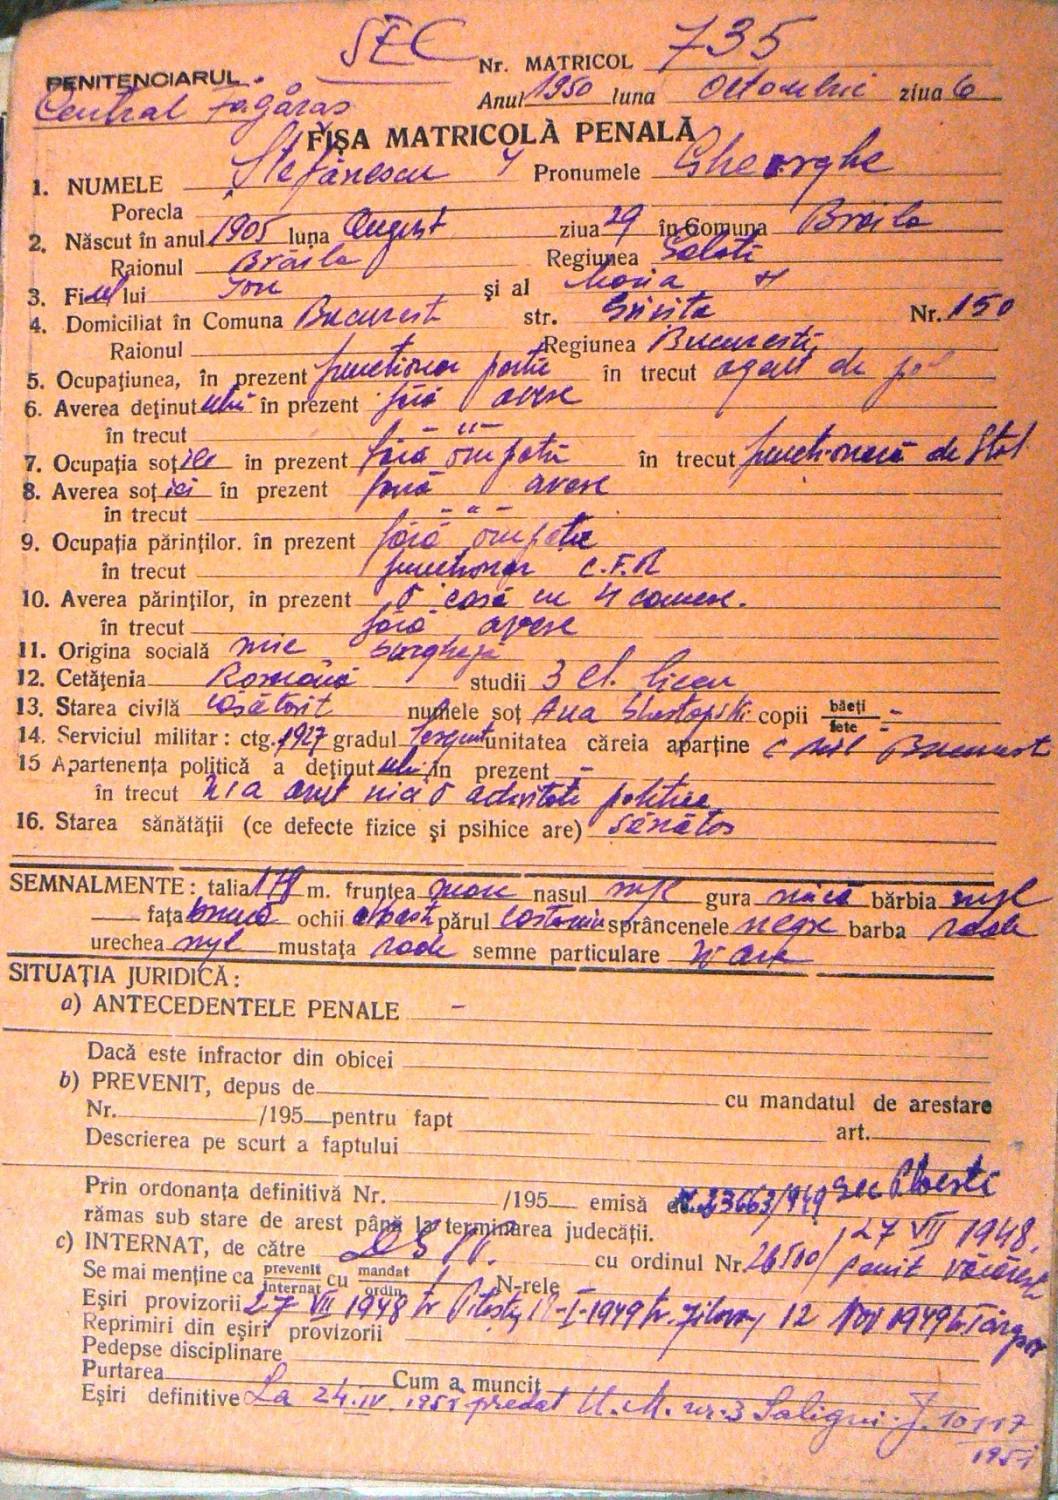 SEC
Nr. MATRICOL 735
PENITENCIARUL
Central Făgăraș
Anul 1950 luna Octombrie ziua 6
FIŞA MATRICOLĂ PENALĂ
1. NUMELE Ștefănescu I Pronumele Gheorghe
Porecla
2. Născut în anul 1905 luna August ziua 29 în Comuna Brăila
Raionul Brăila Regiunea Galati
3. Fiul lui Ion şi al Maria
4. Domiciliat în Comuna Bucuresti str. Grivita Nr. 150
Raionul Regiunea Bucuresti
5. Ocupaţiunea, în prezent functionar în trecut agent de
6. Averea deţinutului în prezent fără avere
în trecut —"—
7. Ocupaţia soţiei în prezent fără ocupatie în trecut functionară de Stat
8. Averea soţiei în prezent fără avere
în trecut —"—
9. Ocupaţia părinţilor. în prezent fără ocupatie
în trecut functionar C.F.R
10. Averea părinţilor, în prezent o casă cu 4 camere.
în trecut fără avere
11. Origina socială mic burgheză
12. Cetăţenia Română studii 3 cl. liceu
13. Starea civilă căsătorit numele soţ Ana copii băeţi fete -
14. Serviciul militar: ctg. 1927 gradul Sergent unitatea căreia aparţine Bucuresti
15 Apartenenţa politică a deţinutului în prezent -
în trecut n'a avut nici o activitate politica
16. Starea sănătăţii (ce defecte fizice şi psihice are) sănătos
SEMNALMENTE: talia 178 m. fruntea mare nasul mjl gura mică bărbia mjl
faţa brună ochii albastri părul castaniu sprâncenele negre barba rade
urechea mjl mustaţa rade semne particulare N'are
SITUAŢIA JURIDICĂ:
a) ANTECEDENTELE PENALE -
Dacă este infractor din obicei
b) PREVENIT, depus de cu mandatul de arestare
Nr. /195 pentru fapt art.
Descrierea pe scurt a faptului
Prin ordonanţa definitivă Nr. /195 emisă de 23663/949 Ploesti
rămas sub stare de arest până la terminarea judecăţii.
c) INTERNAT, de către cu ordinul Nr. 26500/ 27 VII 1948. penit Văcăresti
Se mai menţine ca prevenit internat cu mandat ordin N-rele
Eşiri provizorii 27 VII 1948 tr Pitesti, I-1949 tr. Jilava, 12 Nov 1949 tr. Târgsor
Reprimiri din eşiri provizorii
Pedepse disciplinare
Purtarea Cum a muncit
Eşiri definitive La 24.IV.1951 predat U.M. nr. 3 Saligni. J. 10117
1951